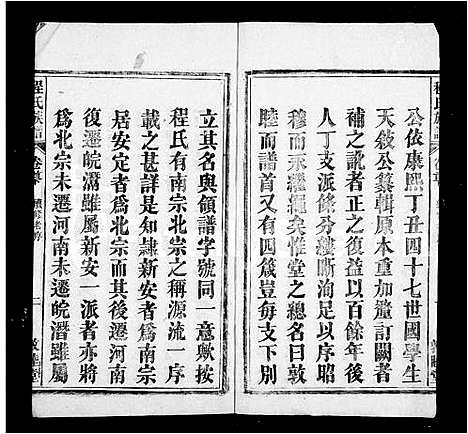 公依康熙丁丑四十七世國學生
天敘公纂輯原本重加釐訂闕者
補之訛者正之復益以百餘年後
人丁支派條分縷晰洵足以序昭
穆而示纚纚矣惟堂之總名曰敦
睦而言又以四箴豈每支下別
立其名與領譜字號同一意歟按
程氏有南宗北宗之稱源流一序
載之甚詳是知隷新安者爲南宗
居安定者爲北宗而其後遷河南
復遷皖灊雖屬新安一派者亦將
爲北宗未遷河南未遷皖潛雖屬
程氏族譜
卷首
二
敦睦堂